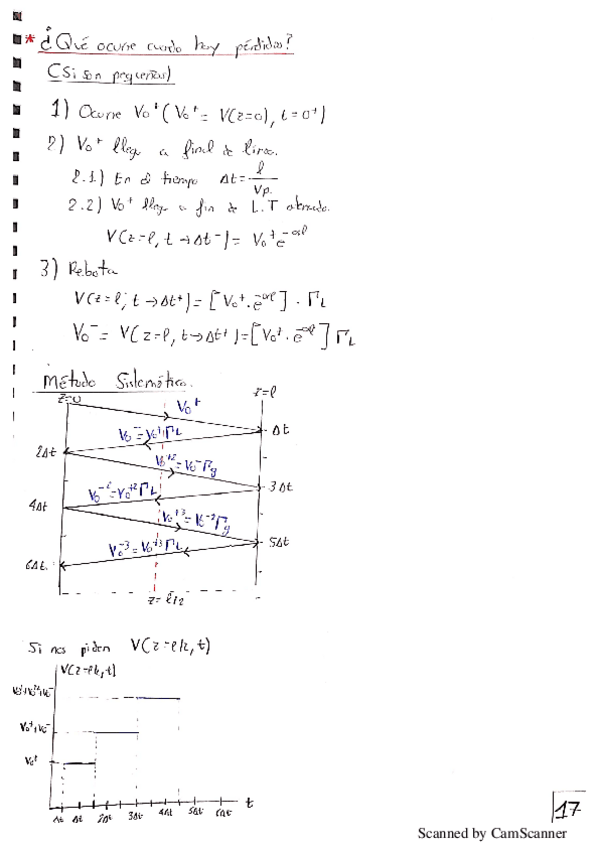 * ¿Qué ocurre cuando hay pérdidas?
(Si son pequeñas)
1) Ocurre V₀⁺ (V₀⁺ = V(z=0), t=0⁺)
2) V₀⁺ llega a final de línea.
2.1) En el tiempo Δt = l/Vp.
2.2) V₀⁺ llega a fin de L.T atenuado.
V(z=l, t→Δt⁻) = V₀⁺e^-αl
3) Rebota
V(z=l, t→Δt⁺) = [V₀⁺·e^-αl]·Γ_L
V₀⁻ = V(z=l, t→Δt⁺) = [V₀⁺·e^-αl] Γ_L
Método Sistemático.
z=0 z=l
V₀⁺
Δt
V₀⁻=V₀⁺Γ_L
2Δt
V₀⁺²=V₀⁻Γg
3Δt
V₀⁻²=V₀⁺²Γ_L
4Δt
V₀⁺³=V₀⁻²Γg
5Δt
V₀⁻³=V₀⁺³Γ_L
6Δt
z=l/2
Si nos piden V(z=l/2, t)
V(z=l/2, t)
V₀⁺+V₀⁻
V₀⁺
Δt 2Δt 3Δt 4Δt 5Δt 6Δt t
17
Scanned by CamScanner